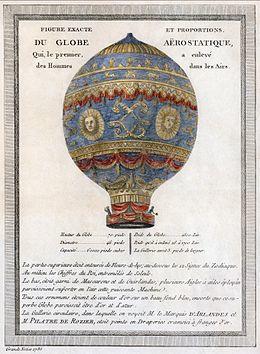 FIGURE EXACTE ET PROPORTIONS,
DU GLOBE AËROSTATIQUE,
Qui, le premier, a enlevé
des Hommes dans les Airs.
Hauteur du Globe 70 pieds
Diametre 46 pieds
Capacité 60000 pieds cubes
Poids du Globe 1600 Liv.
Poids qu'il a enlevé
La Gallerie avoit 3 pieds de largeur
La partie supérieure étoit entourée de Fleurs-de-lys, au dessous les 12 Signes du Zodiaque.
Au milieu les Chiffres du Roi, entremêlés de Soleils.
Le bas, étoit garni de Mascarons et de Guirlandes, plusieurs Aigles à ailes éployées
paroissoient supporter en l'air cette puissante Machine.
Tous ces ornemens étoient de couleur d'or sur un beau fond bleu, ensorte que ce superbe
Globe paroissoit être d'or et d'azur.
La Gallerie circulaire, dans laquelle on voyoit M. le Marquis D'ARLANDES et
M. PILATRE DE ROZIER, étoit peinte en Draperies cramoisi à franges d'or.